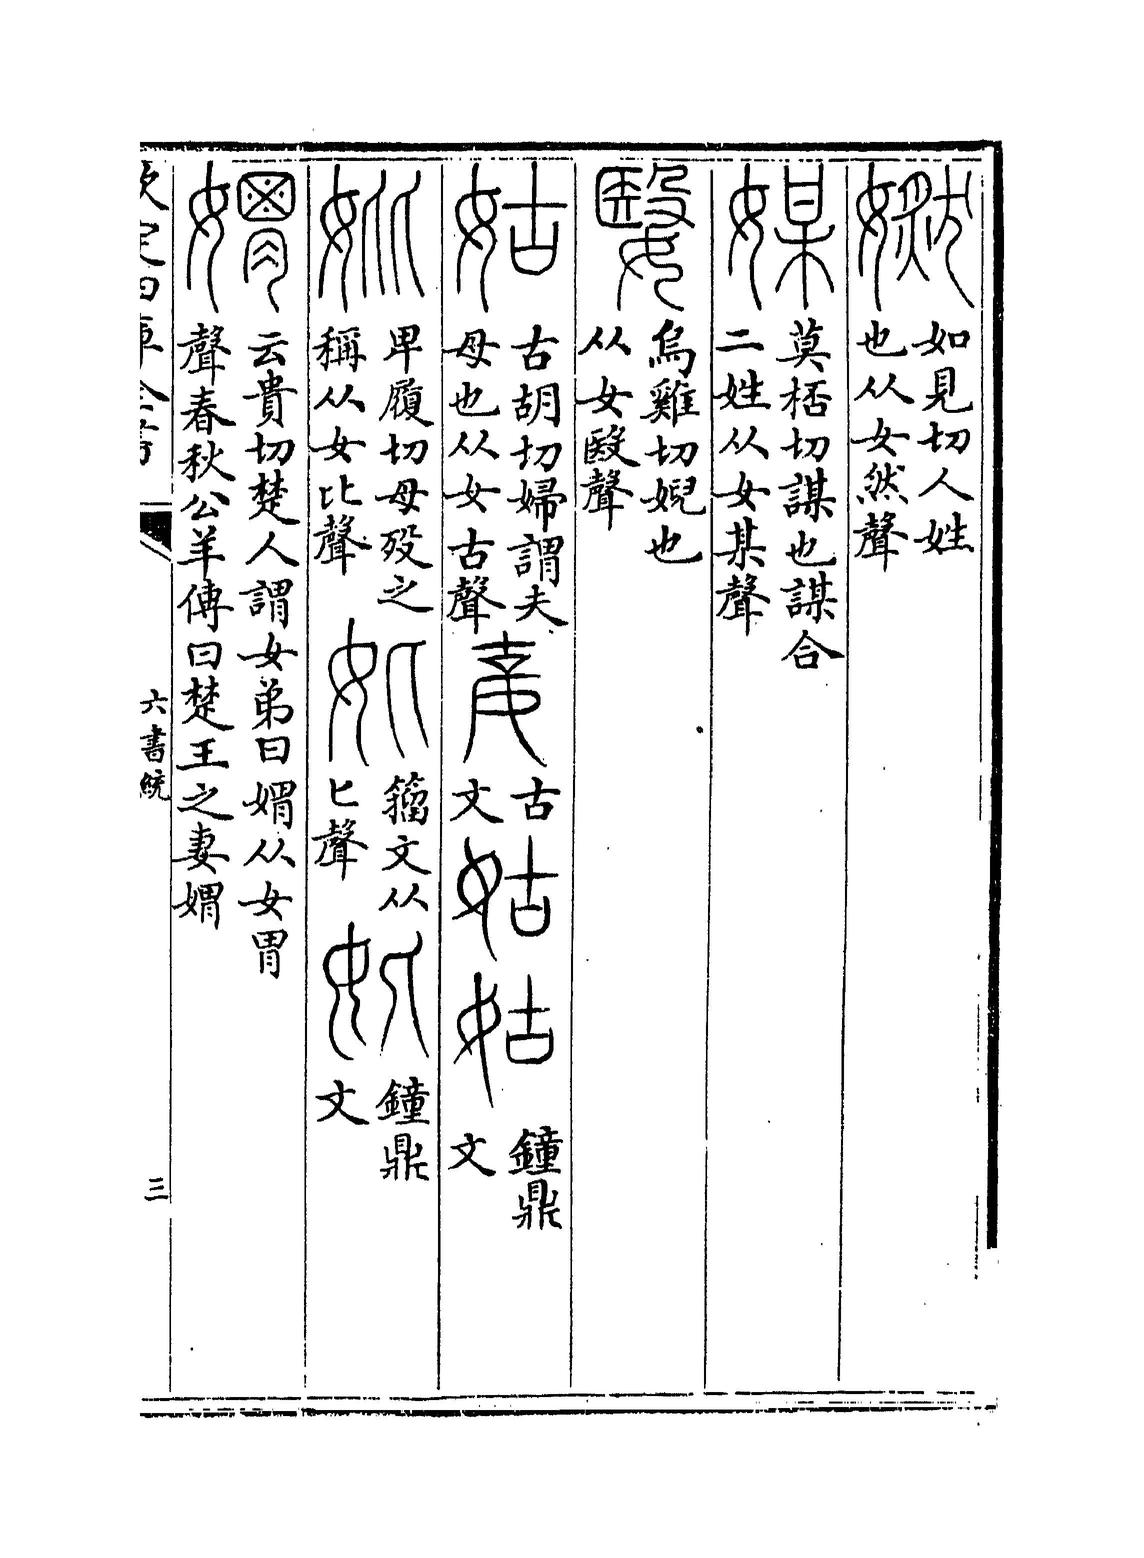 㜣如見切人姓
也从女然聲
媒莫桮切謀也謀合
二姓从女某聲
嫛烏雞切婗也
从女殹聲
姑古胡切婦謂夫
母也从女古聲
古
文
姑
姑
鐘鼎
文
妣卑履切母殁之
稱从女比聲
籀文从
匕聲
鐘鼎
文
媦云貴切楚人謂女弟曰媦从女胃
聲春秋公羊傳曰楚王之妻媦
欽定四庫全書
六書統
三